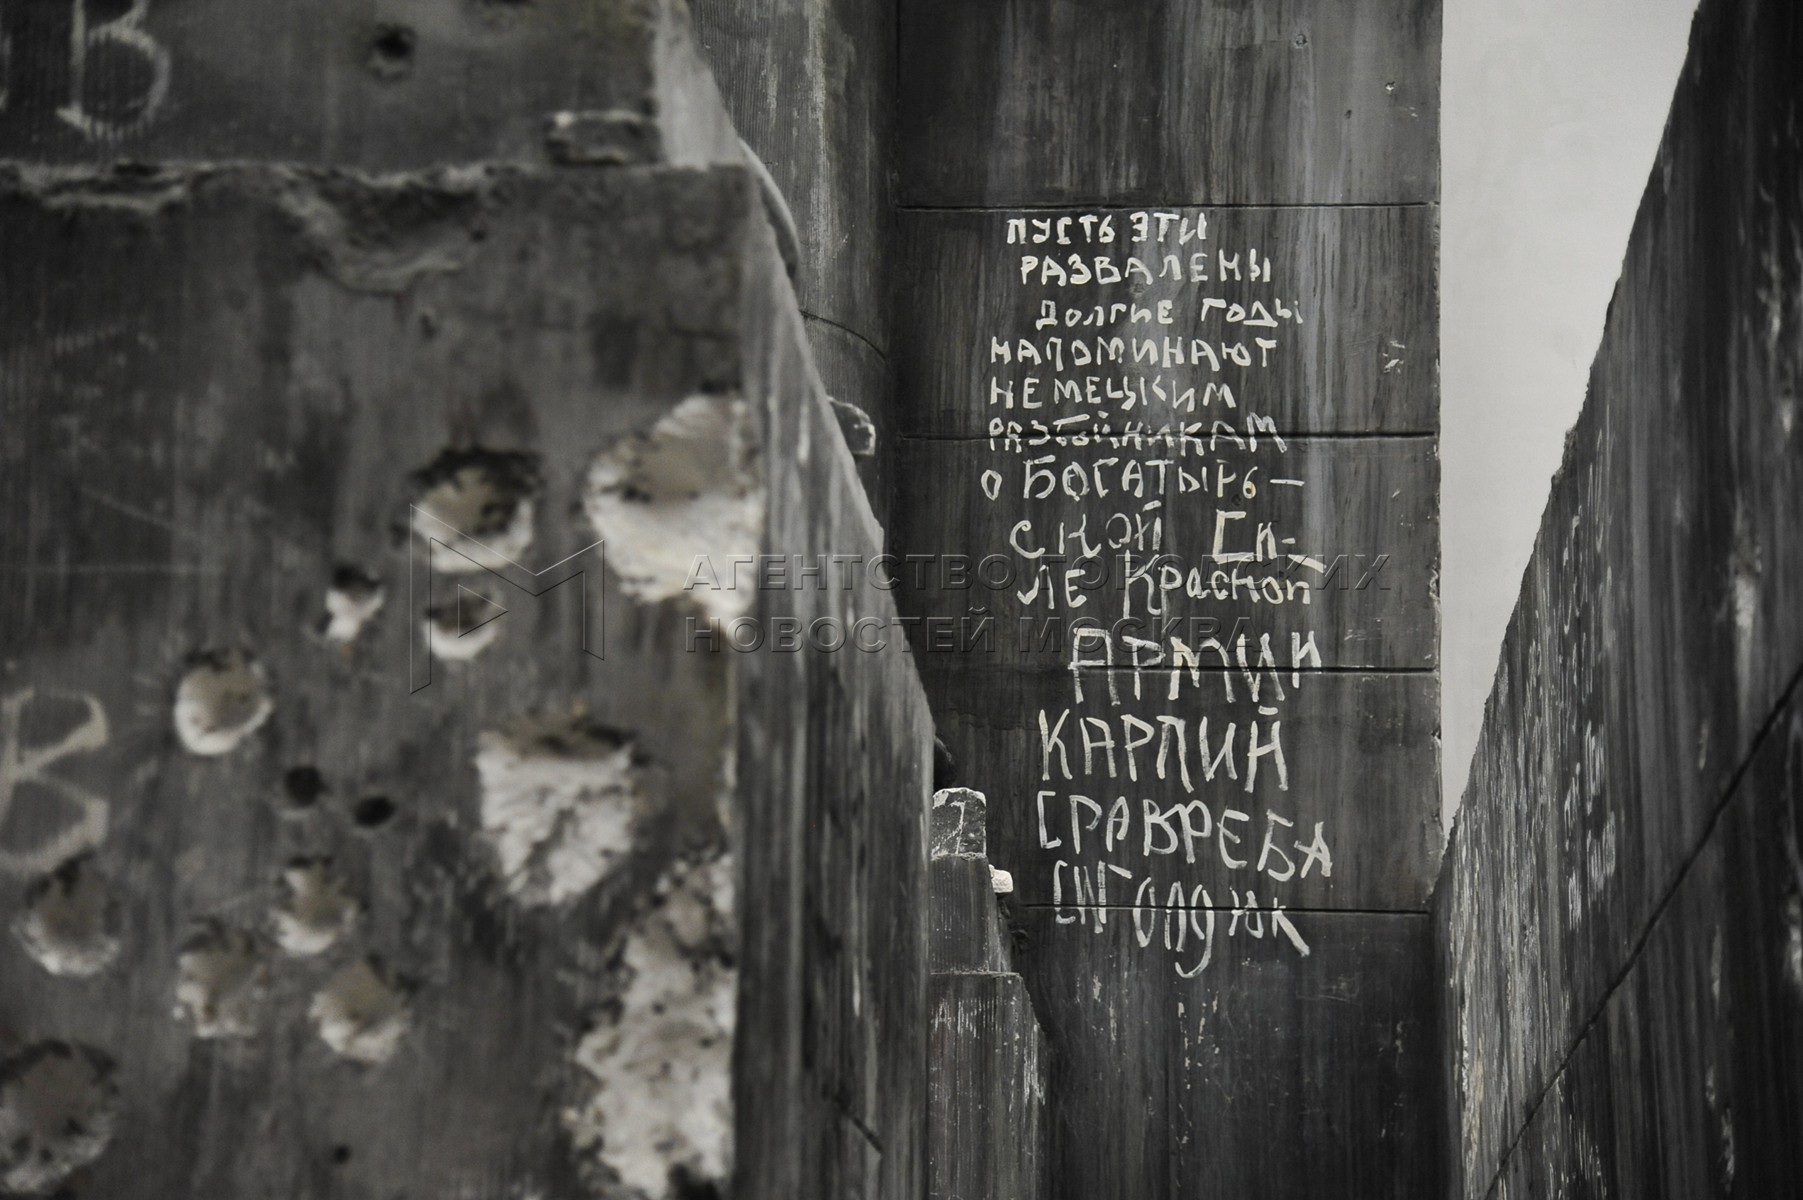 В
В
ПУСТЬ ЭТИ
РАЗВАЛЕНЫ
ДОЛГИЕ ГОДЫ
НАПОМИНАЮТ
НЕМЕЦКИМ
РАЗБОЙНИКАМ
О БОГАТЫРЬ-
СКОЙ СИ-
ЛЕ КРАСНОЙ
АРМИИ
КАРПИЙ
АГЕНТСТВО ГОРОДСКИХ
НОВОСТЕЙ МОСКВА